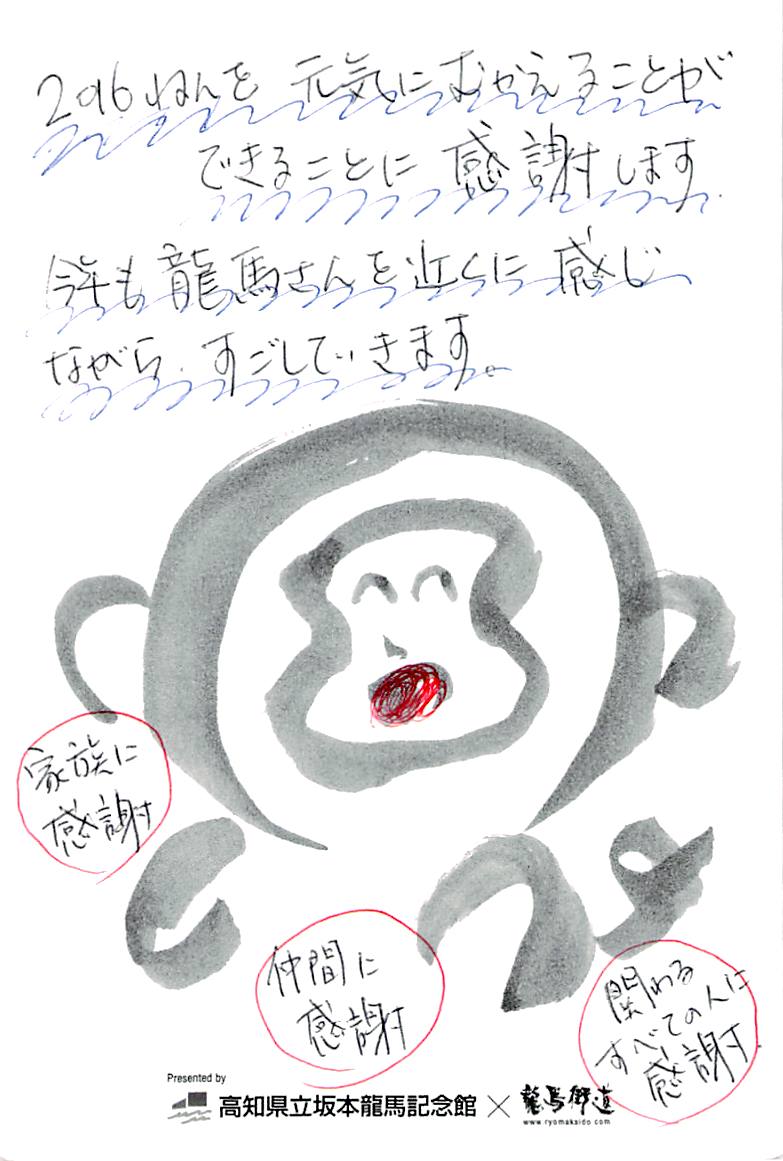 2016ねんを 元気にむかえることが
できることに 感謝します
今年も龍馬さんを近くに感じ
ながら、すごしていきます。
家族に
感謝
仲間に
感謝
関わる
すべての人に
感謝
Presented by
高知県立坂本龍馬記念館×龍馬街道
www.ryomakaido.com